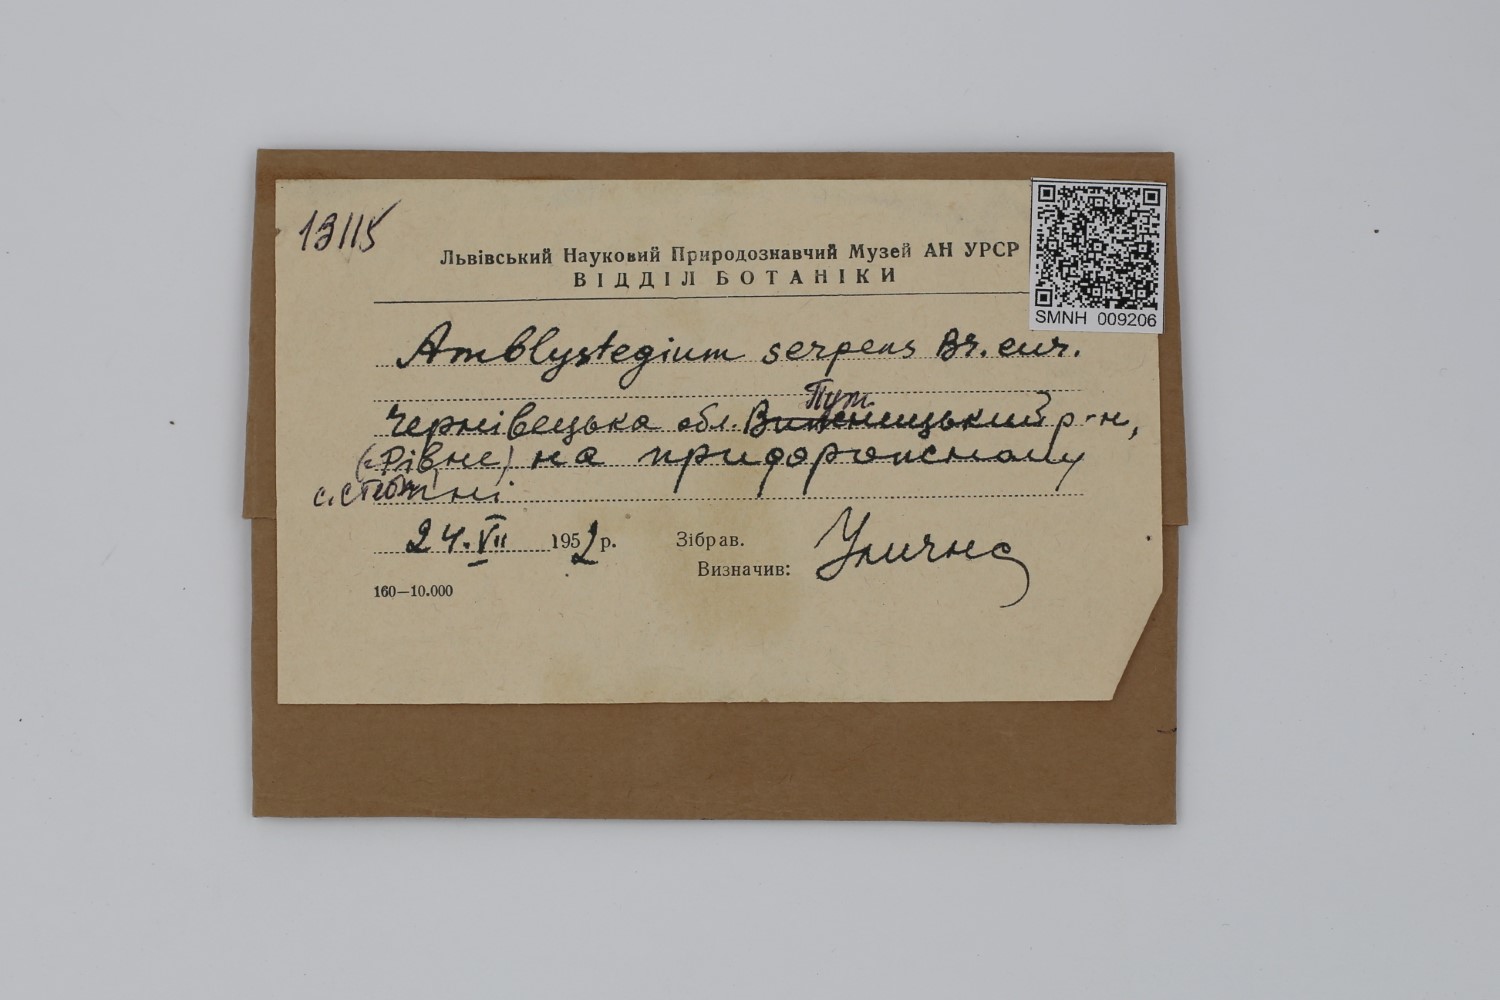 13115
Львівський Науковий Природознавчий Музей АН УРСР
ВІДДІЛ БОТАНІКИ
SMNH 009206
Amblystegium serpens Br. eur.
Пут.
Чернівецька обл. Вижницький р-н,
(Рівне) на придорожному
с.
24.VII 1952 р. Зібрав.
Визначив: Улична
160—10.000